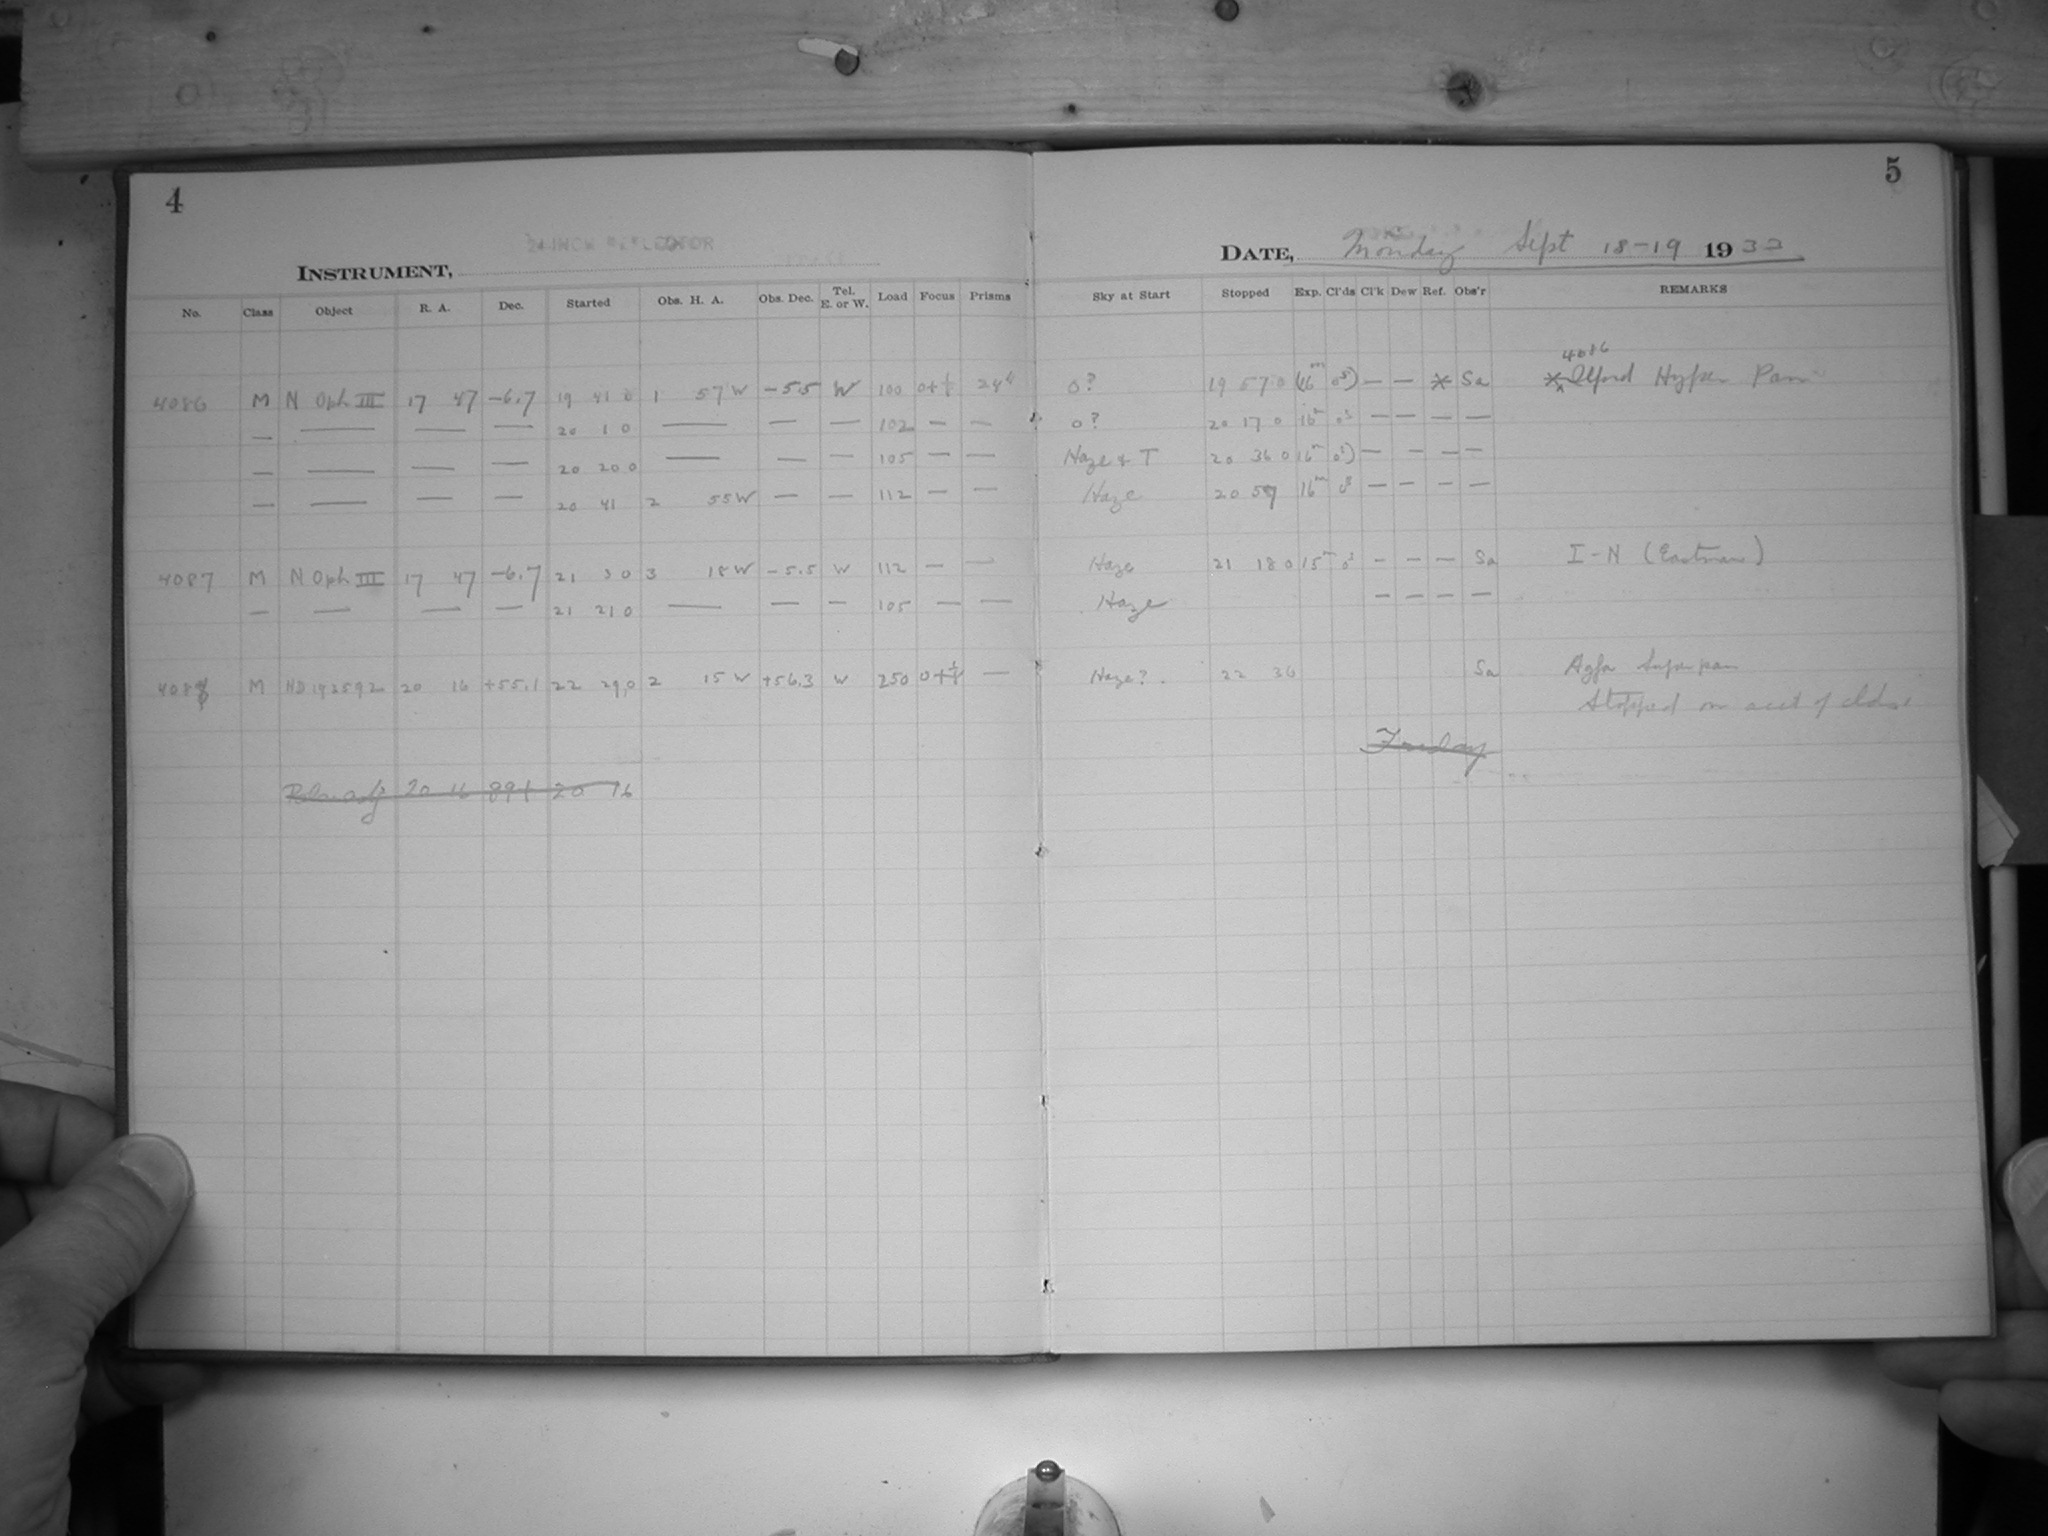 4
5
24 INCH REFLECTOR
INSTRUMENT,
DATE, Monday Sept 18-19 1933
No. Class Object R. A. Dec. Started Obs. H. A. Obs. Dec. Tel. E. or W. Load Focus Prisms Sky at Start Stopped Exp. Cl'ds Cl'k Dew Ref. Obs'r REMARKS
4086
4086 M N Oph III 17 47 -6.7 19 41 0 1 57 W -5.5 W 100 0+ 24" o? 19 57 0 (16m 0s) — — * Sa * Ilford Hyper Pan
— — — — 20 1 0 — — — 102 — — o? 20 17 0 16m 0s — — — —
— — — — 20 20 0 — — — 105 — — Haze & T 20 36 0 16m 0s) — — — —
— — — — 20 41 2 55 W — — 112 — — Haze 20 57 16m 0s — — — —
4087 M N Oph III 17 47 -6.7 21 3 0 3 18 W -5.5 W 112 — — Haze 21 18 0 15m 0s — — — Sa I-N (Eastman)
— — — — 21 21 0 — — — 105 — — Haze — — — —
4088 M HD 192592 20 16 +55.1 22 29.0 2 15 W +56.3 W 250 — Haze? 22 36 Sa Agfa Superpan
Stopped on acct of clds.
Friday
20 16 89 20 16